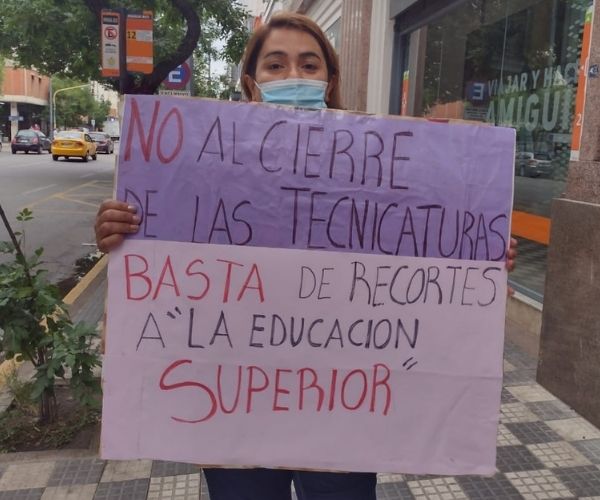 12
E
NO AL CIERRE
DE LAS TECNICATURAS
BASTA DE RECORTES
A "LA EDUCACION
SUPERIOR"
VIAJAR Y HAC
AMIGU